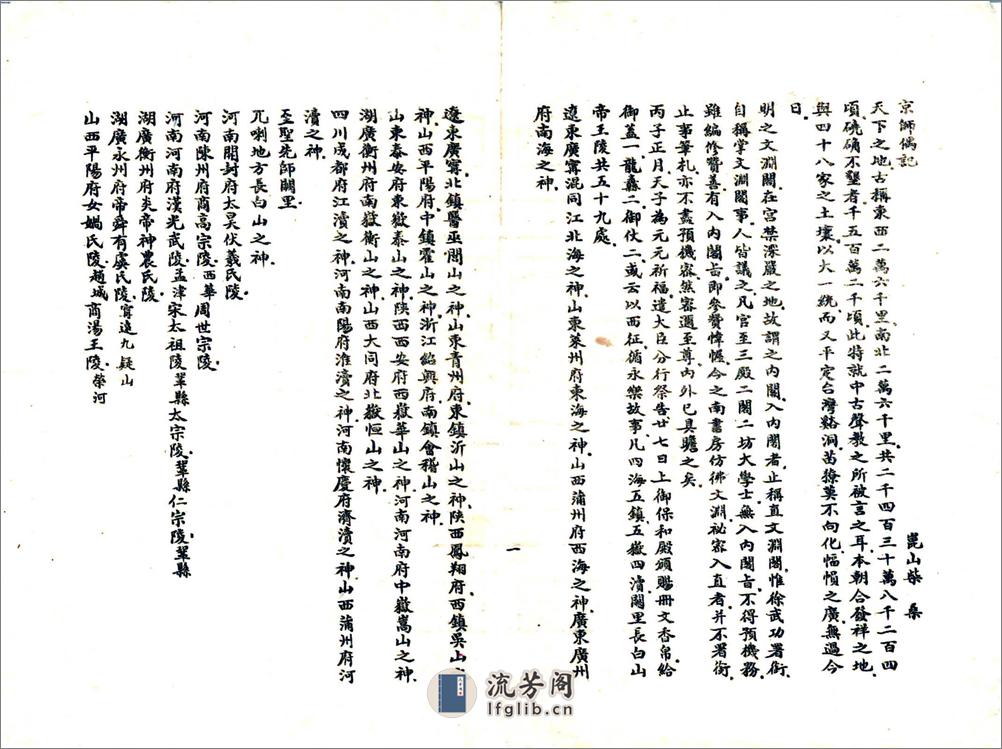 京師偶記
崑山柴桑
天下之地古稱東西二萬六千里南北二萬六千里共二千四百三十萬八千二百四
頃磽确不墾者千五百萬二千頃此特就中古聲教之所被言之耳本朝合發祥之地
與四十八家之土壤以大一統而又平定台灣谿洞苗獠莫不向化幅幀之廣無過今
日
明之文淵閣在宮禁深嚴之地故謂之內閣入內閣者止稱直文淵閣惟徐武功署銜
自稱掌文淵閣事人皆議之凡官至三殿二閣二坊大學士無入內閣旨不得預機務
雖編修贊善有入內閣旨即參贊幃幄今之南書房仿彿文淵祕密入直者并不署銜
止事筆札亦不盡預機密然密邇至尊內外已具瞻之矣
丙子正月天子為元元祈福遣大臣分行祭告廿七日上御保和殿頒賜冊文香帛給
御蓋一龍纛二御仗二或云以西征循永樂故事凡四海五鎮五嶽四瀆闕里長白山
帝王陵共五十九處
遼東廣寧混同江北海之神山東萊州府東海之神山西蒲州府西海之神廣東廣州
府南海之神
遼東廣寧北鎮醫巫閭山之神山東青州府東鎮沂山之神陝西鳳翔府西鎮吳山之
神山西平陽府中鎮霍山之神浙江紹興府南鎮會稽山之神
山東泰安府東嶽泰山之神陝西西安府西嶽華山之神河南河南府中嶽嵩山之神
湖廣衡州府南嶽衡山之神山西大同府北嶽恒山之神
四川成都府江瀆之神河南南陽府淮瀆之神河南懷慶府濟瀆之神山西蒲州府河
瀆之神
至聖先師闕里
兀喇地方長白山之神
河南開封府太昊伏羲氏陵
河南陳州府商高宗陵西華周世宗陵
河南河南府漢光武陵孟津宋太祖陵鞏縣太宗陵鞏縣仁宗陵鞏縣
湖廣衡州府炎帝神農氏陵
湖廣永州府帝舜有虞氏陵甯遠九疑山
山西平陽府女媧氏陵趙城商湯王陵榮河
一
流芳阁
lfglib.cn